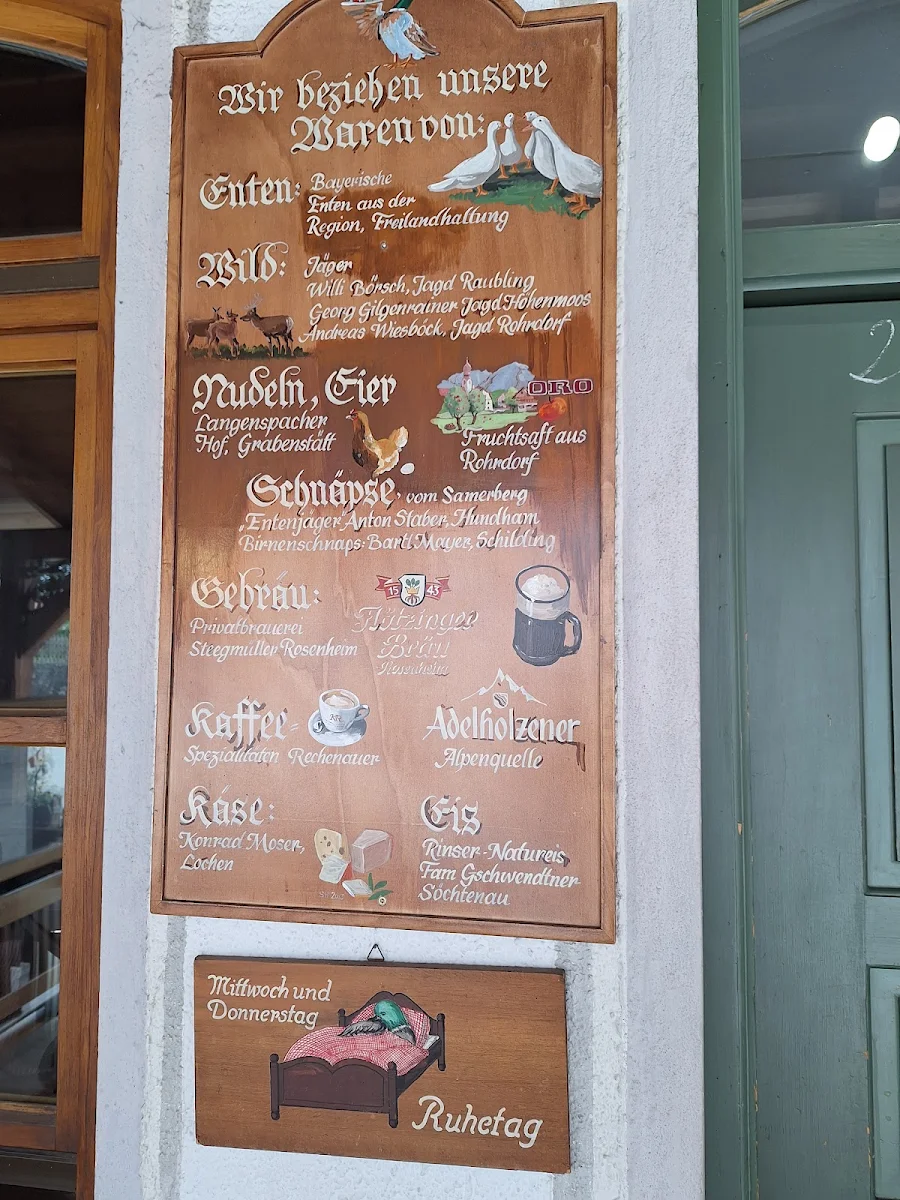 Wir beziehen unsere
Waren von:
Enten: Bayerische
Enten aus der
Region, Freilandhaltung
Wild: Jäger
Willi Börsch, Jagd Raubling
Georg Gilgenrainer Jagd Hohenmoos
Andreas Wiesböck, Jagd Rohrdorf
Nudeln, Eier
Langenspacher
Hof, Grabenstätt
ORO
Fruchtsaft aus
Rohrdorf
Schnäpse, vom Samerberg
„Entenjäger" Anton Staber, Hundham
Birnenschnaps: Bartl Mayer, Schilding
Gebräu:
Privatbrauerei
Steegmüller Rosenheim
15 43
Flötzinger
Bräu
Rosenheim
Kaffee-
Spezialitäten Rechenauer
Adelholzener
Alpenquelle
Käse:
Konrad Moser,
Lochen
Eis
Rinser-Natureis,
Fam Gschwendtner
Söchtenau
Mittwoch und
Donnerstag
Ruhetag
2